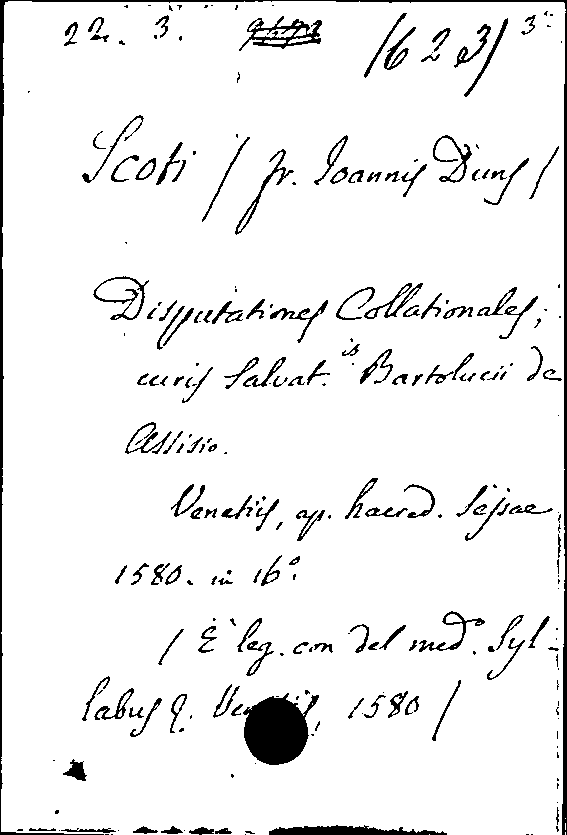 22. 3. (623) 3°
Scoti / fr. Ioannis Duns /
Disputationes Collationales;
curis Salvat.is Bartolucii de
Assisio.
Venetiis, ap. haered. Sessae
1580. in 16°.
/ È leg. con del med.° Syl-
labus q. 1580 /